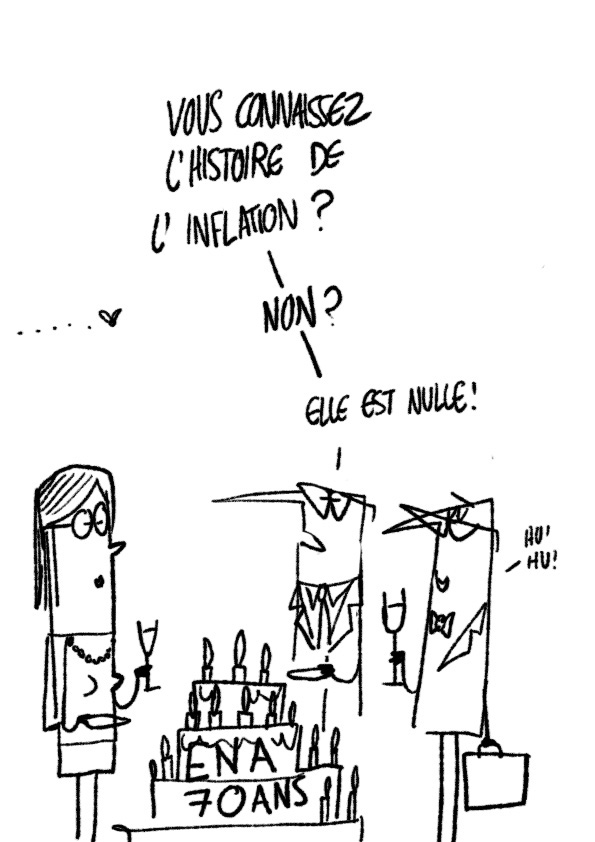 VOUS CONNAISSEZ
L'HISTOIRE DE
L'INFLATION ?
NON ?
ELLE EST NULLE !
HU !
HU !
ENA
70 ANS